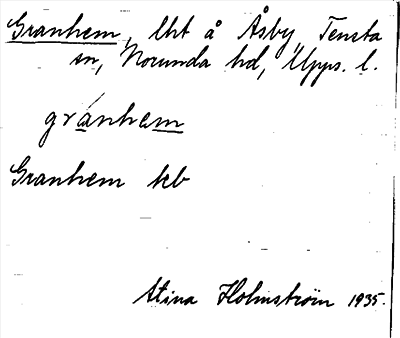 Granhem, lht å Åsby, Tensta
sn, Norunda hd, Upps. l.
gránhem
Granhem kb
Stina Holmström 1935.